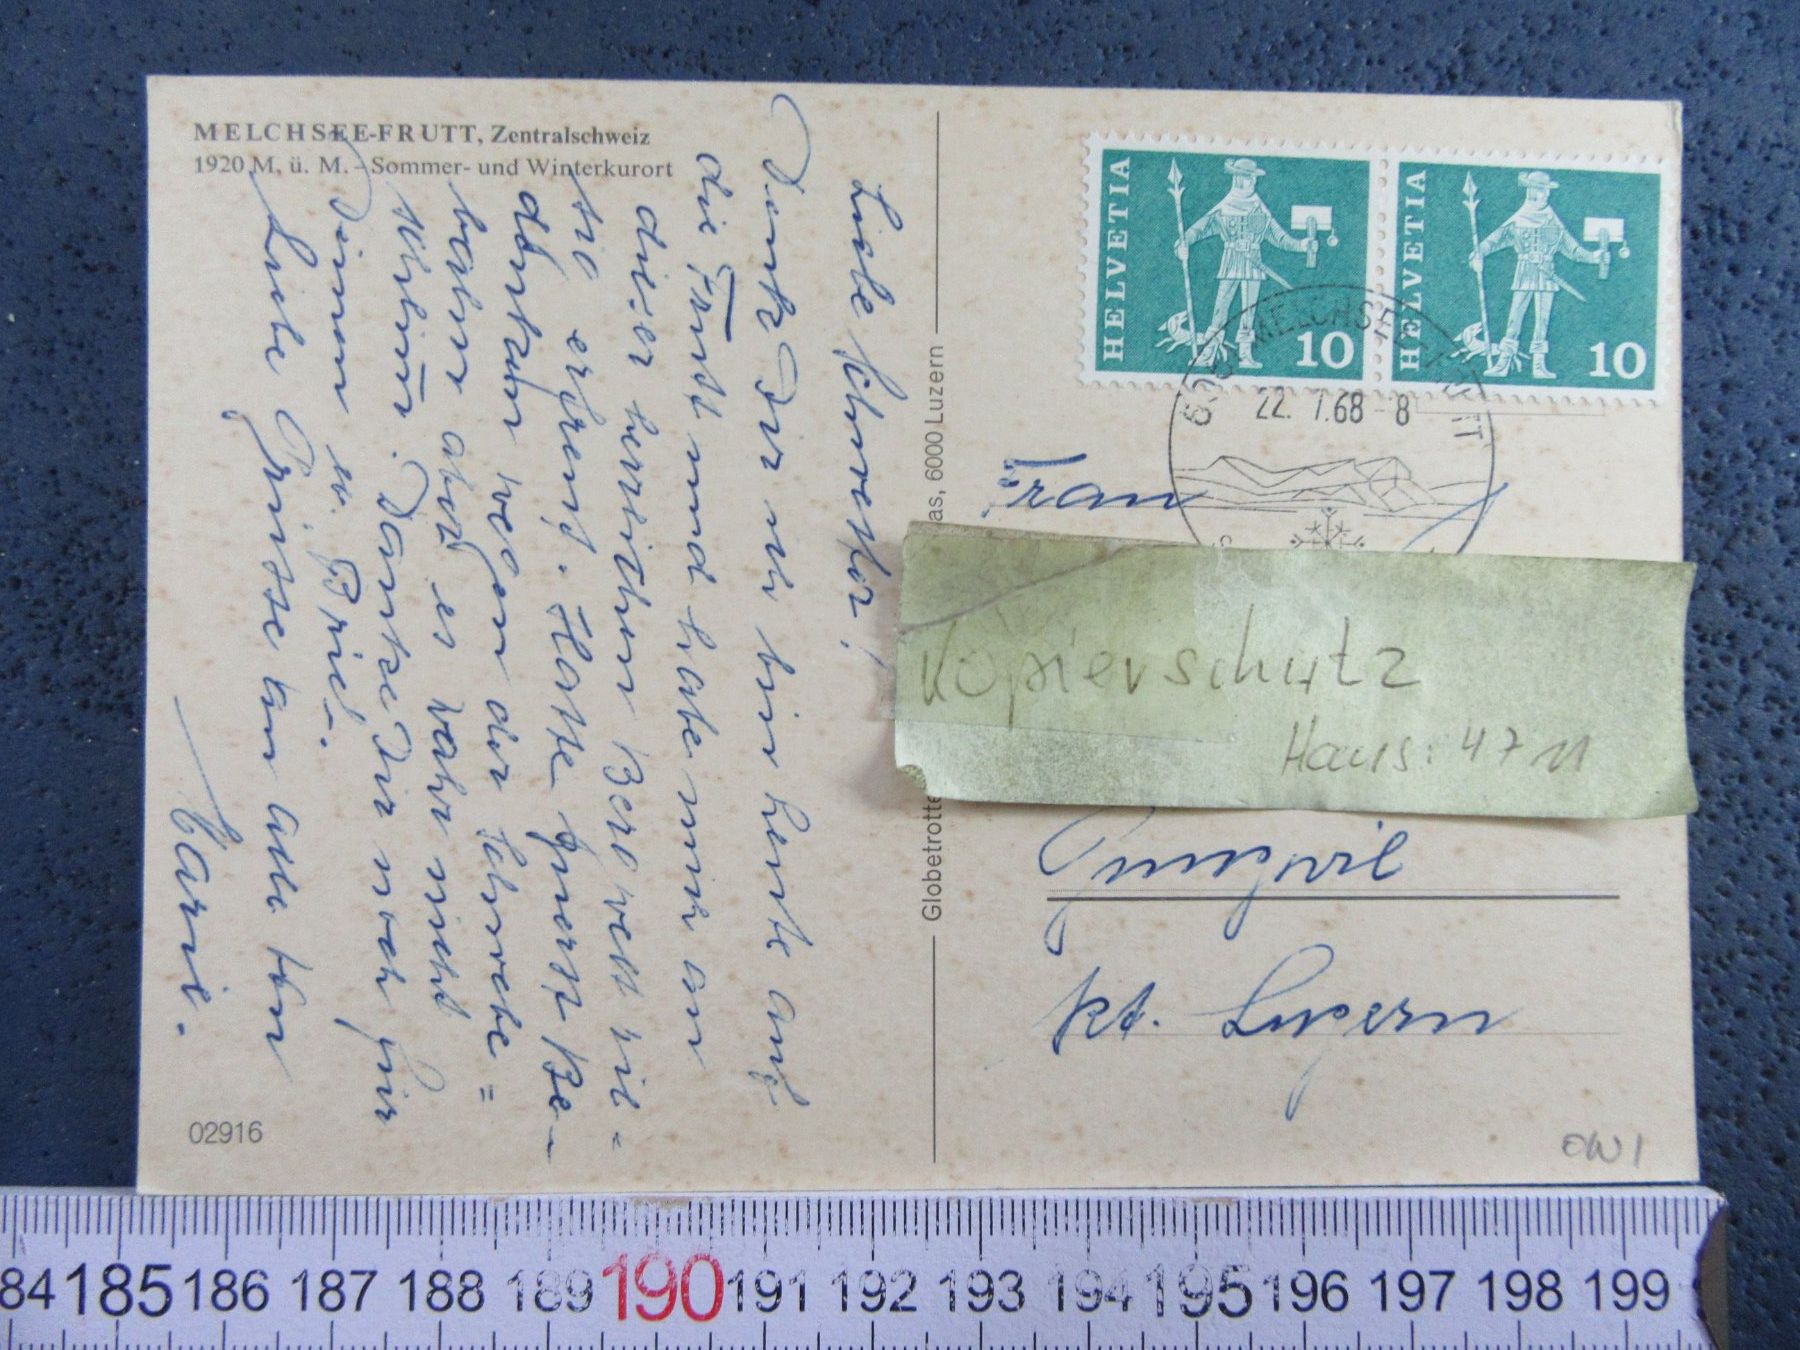 MELCHSEE-FRUTT, Zentralschweiz
1920 M. ü. M. – Sommer- und Winterkurort
Liebe Schwester!
Denke Dir ich bin heute auf
die Frutt und habe mich an
dieser herrlichen Bergwelt
sie erfreut. Hatte zuerst Be-
denken wegen der Schwebe=
bahn aber es war nicht
schlimm. Danke Dir noch für
Deinen lb. Brief.
Liebe Grüsse an alle von
Marie.
02916
Globetrotte
as, 6000 Luzern
HELVETIA
10
HELVETIA
10
MELCHSEE-FRUTT
22. 7.68-8
Frau
Kopierschutz
Haus: 47 11
Gunzwil
Kt. Luzern
OW 1
84 185 186 187 188 189 190 191 192 193 194 195 196 197 198 199